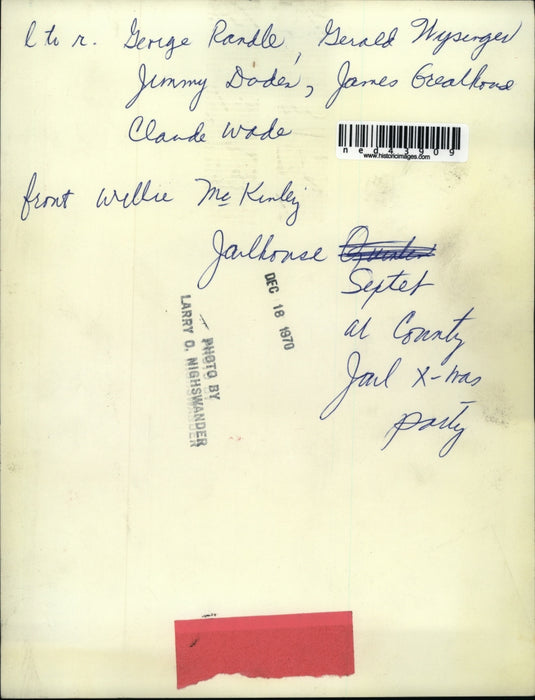 l to r. George Randle, Gerald Wysinger
Jimmy Doder, James Greathouse
Claude Wade
ned43909
www.historicimages.com
front Willie McKinley
Jailhouse
Septet
at County
Jail X-mas
party
DEC 18 1970
PHOTO BY
LARRY O. NIGHSWANDER